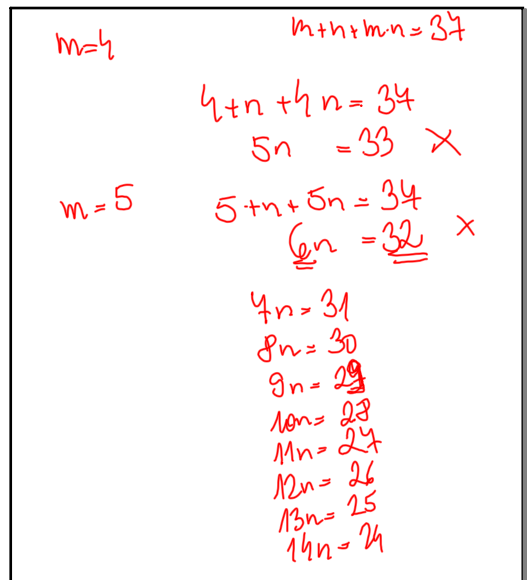 m=4 m+n+m·n=37
4+n+4n=37
5n =33 X
m=5 5+n+5n=37
6n =32 X
7n=31
8n=30
9n=29
10n=28
11n=27
12n=26
13n=25
14n=24